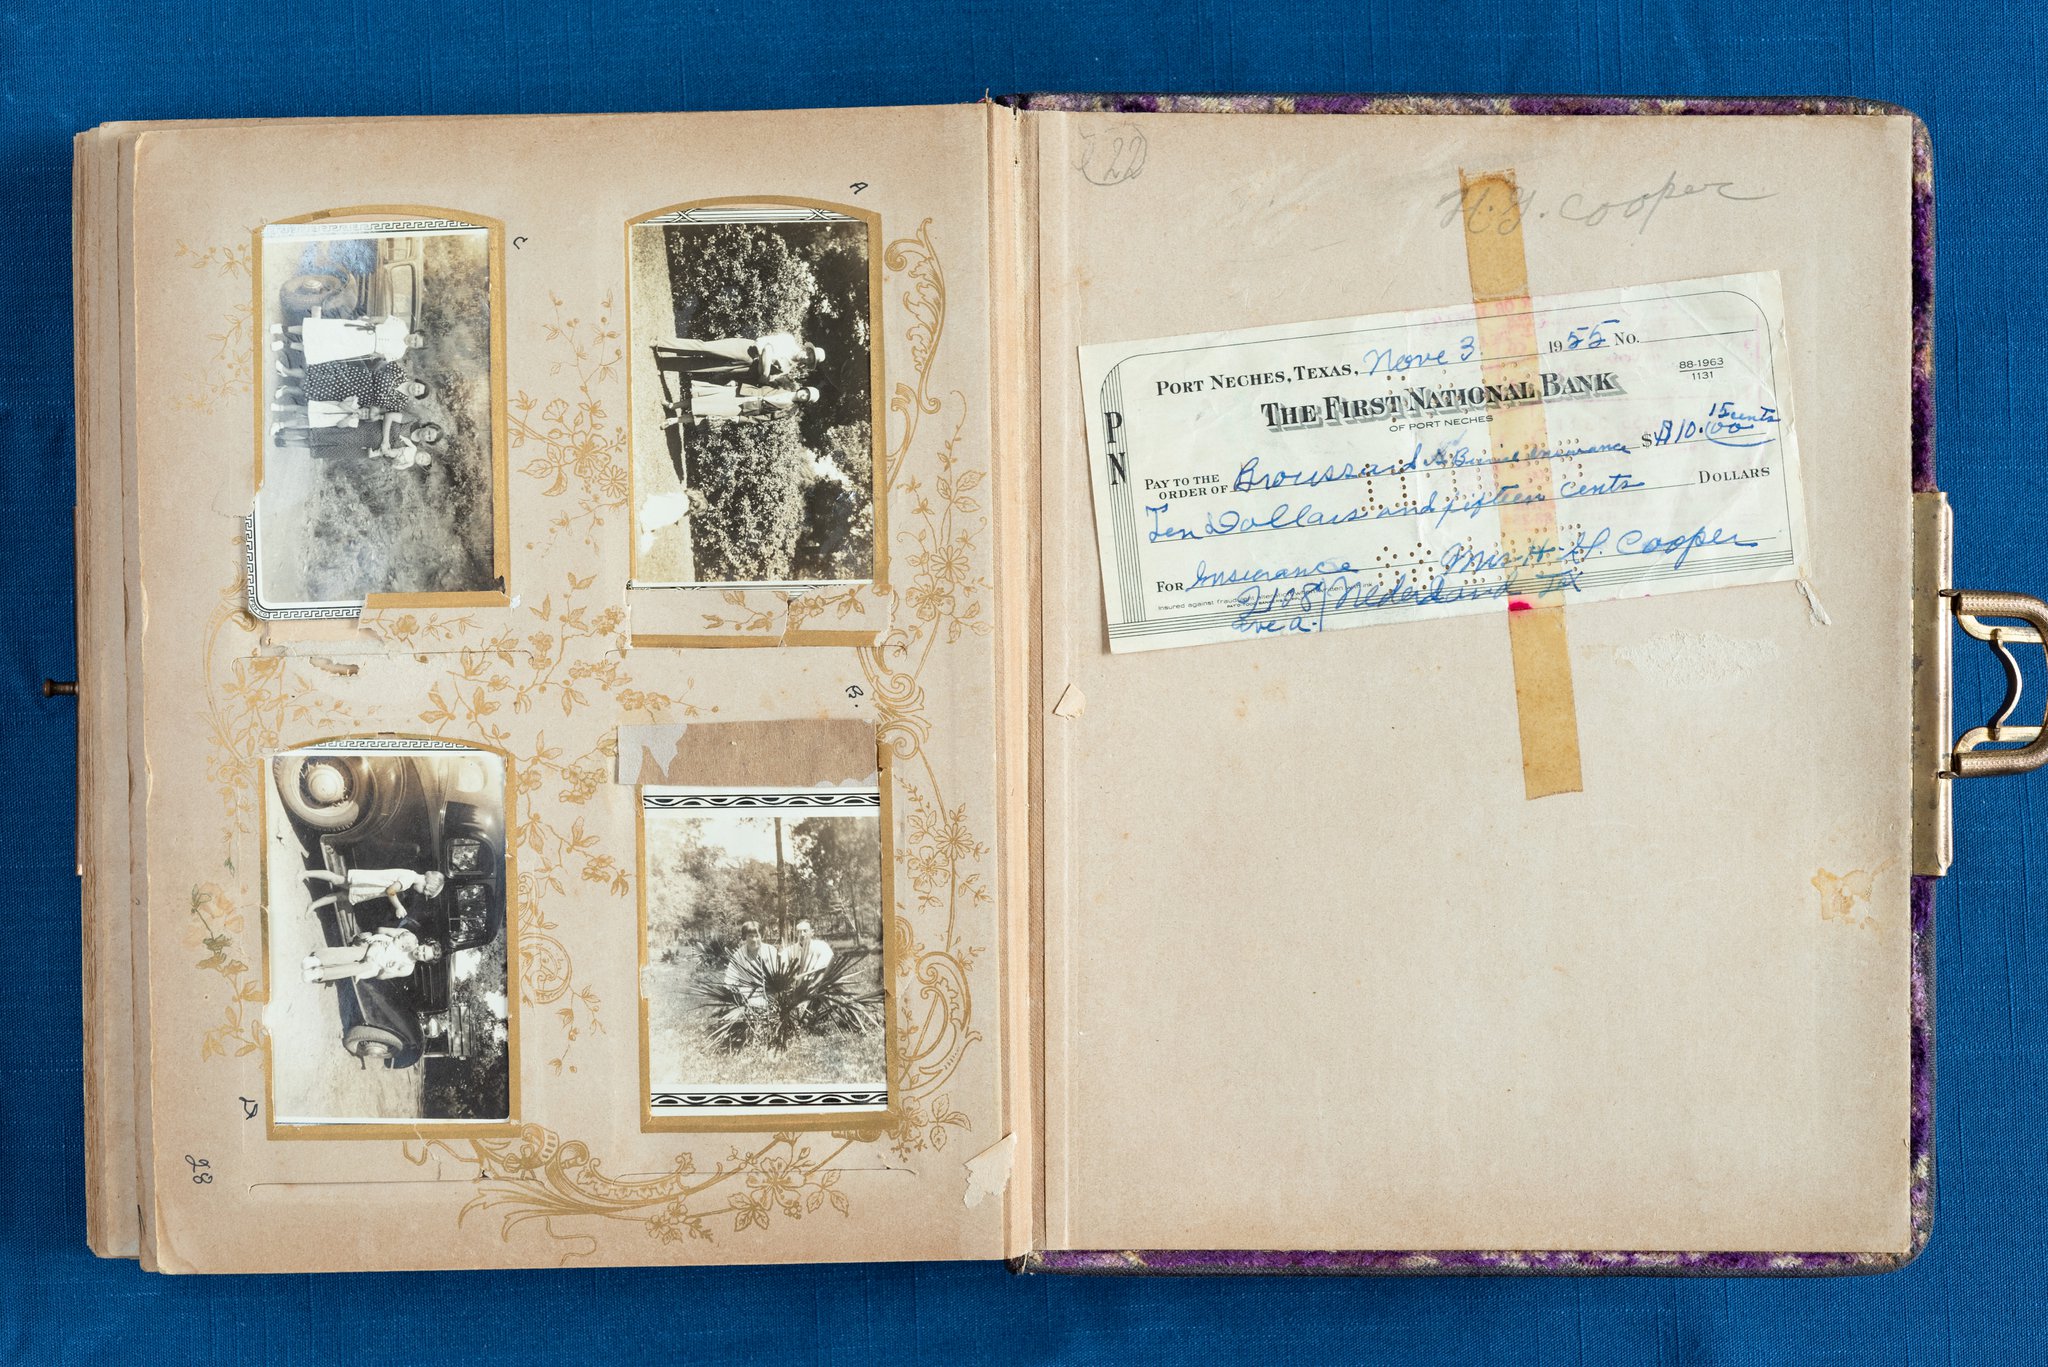 A
C
B.
D
28
22
H. G. Cooper
PORT NECHES, TEXAS, Nove 3 1955 NO.
88-1963
1131
THE FIRST NATIONAL BANK
OF PORT NECHES
P N
PAY TO THE ORDER OF Broussard's Burial Insurance $ 10. 15 cents/00
Ten Dollars and fifteen cents DOLLARS
FOR Insurance Mrs H. G. Cooper
Insured against fraudulent
Nederland Tex
Ave a.